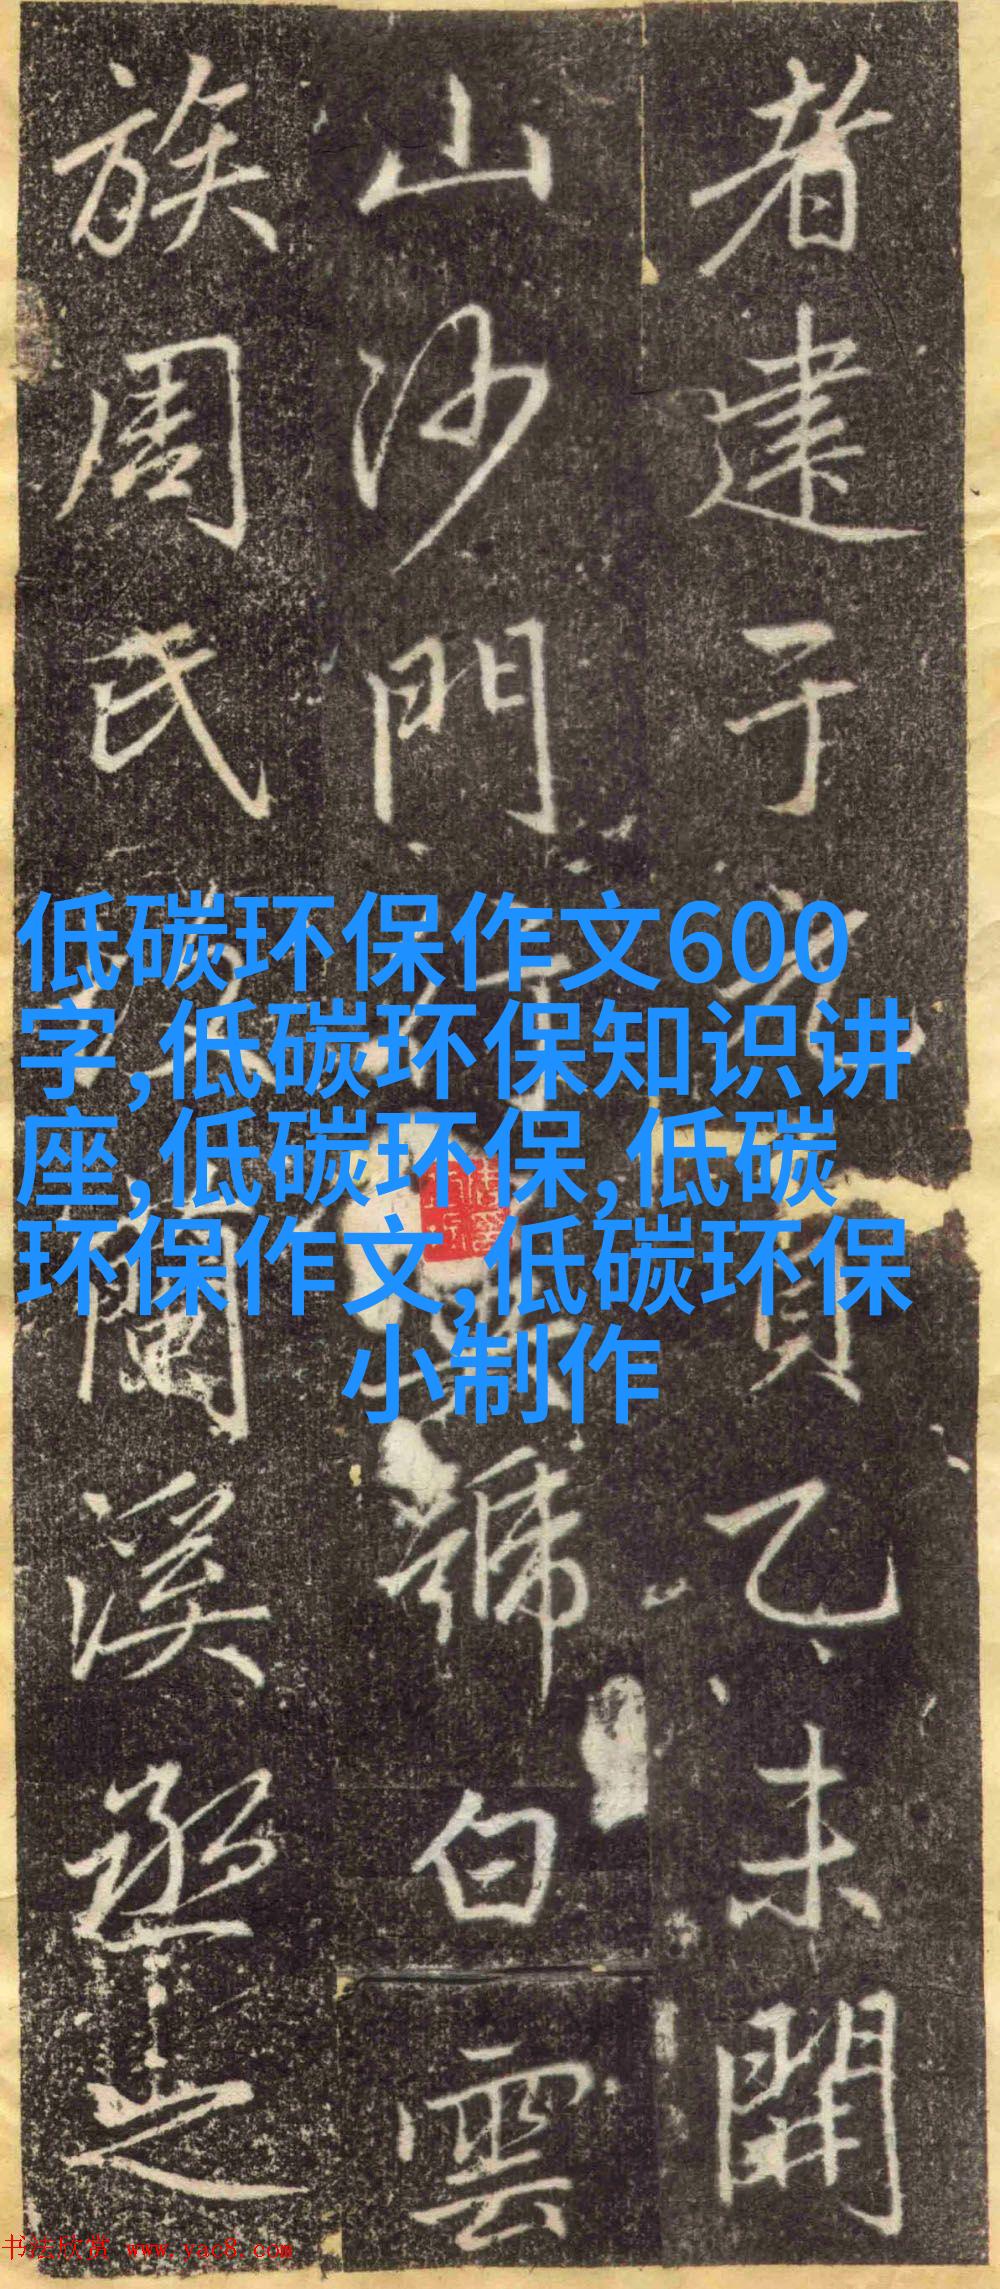 者建于元貞乙未開
山沙門行號白雲
族周氏蘭溪丞之
低碳环保作文600
字,低碳环保知识讲
座,低碳环保,低碳
环保作文,低碳环保
小制作
书法欣赏 www.yac8.com